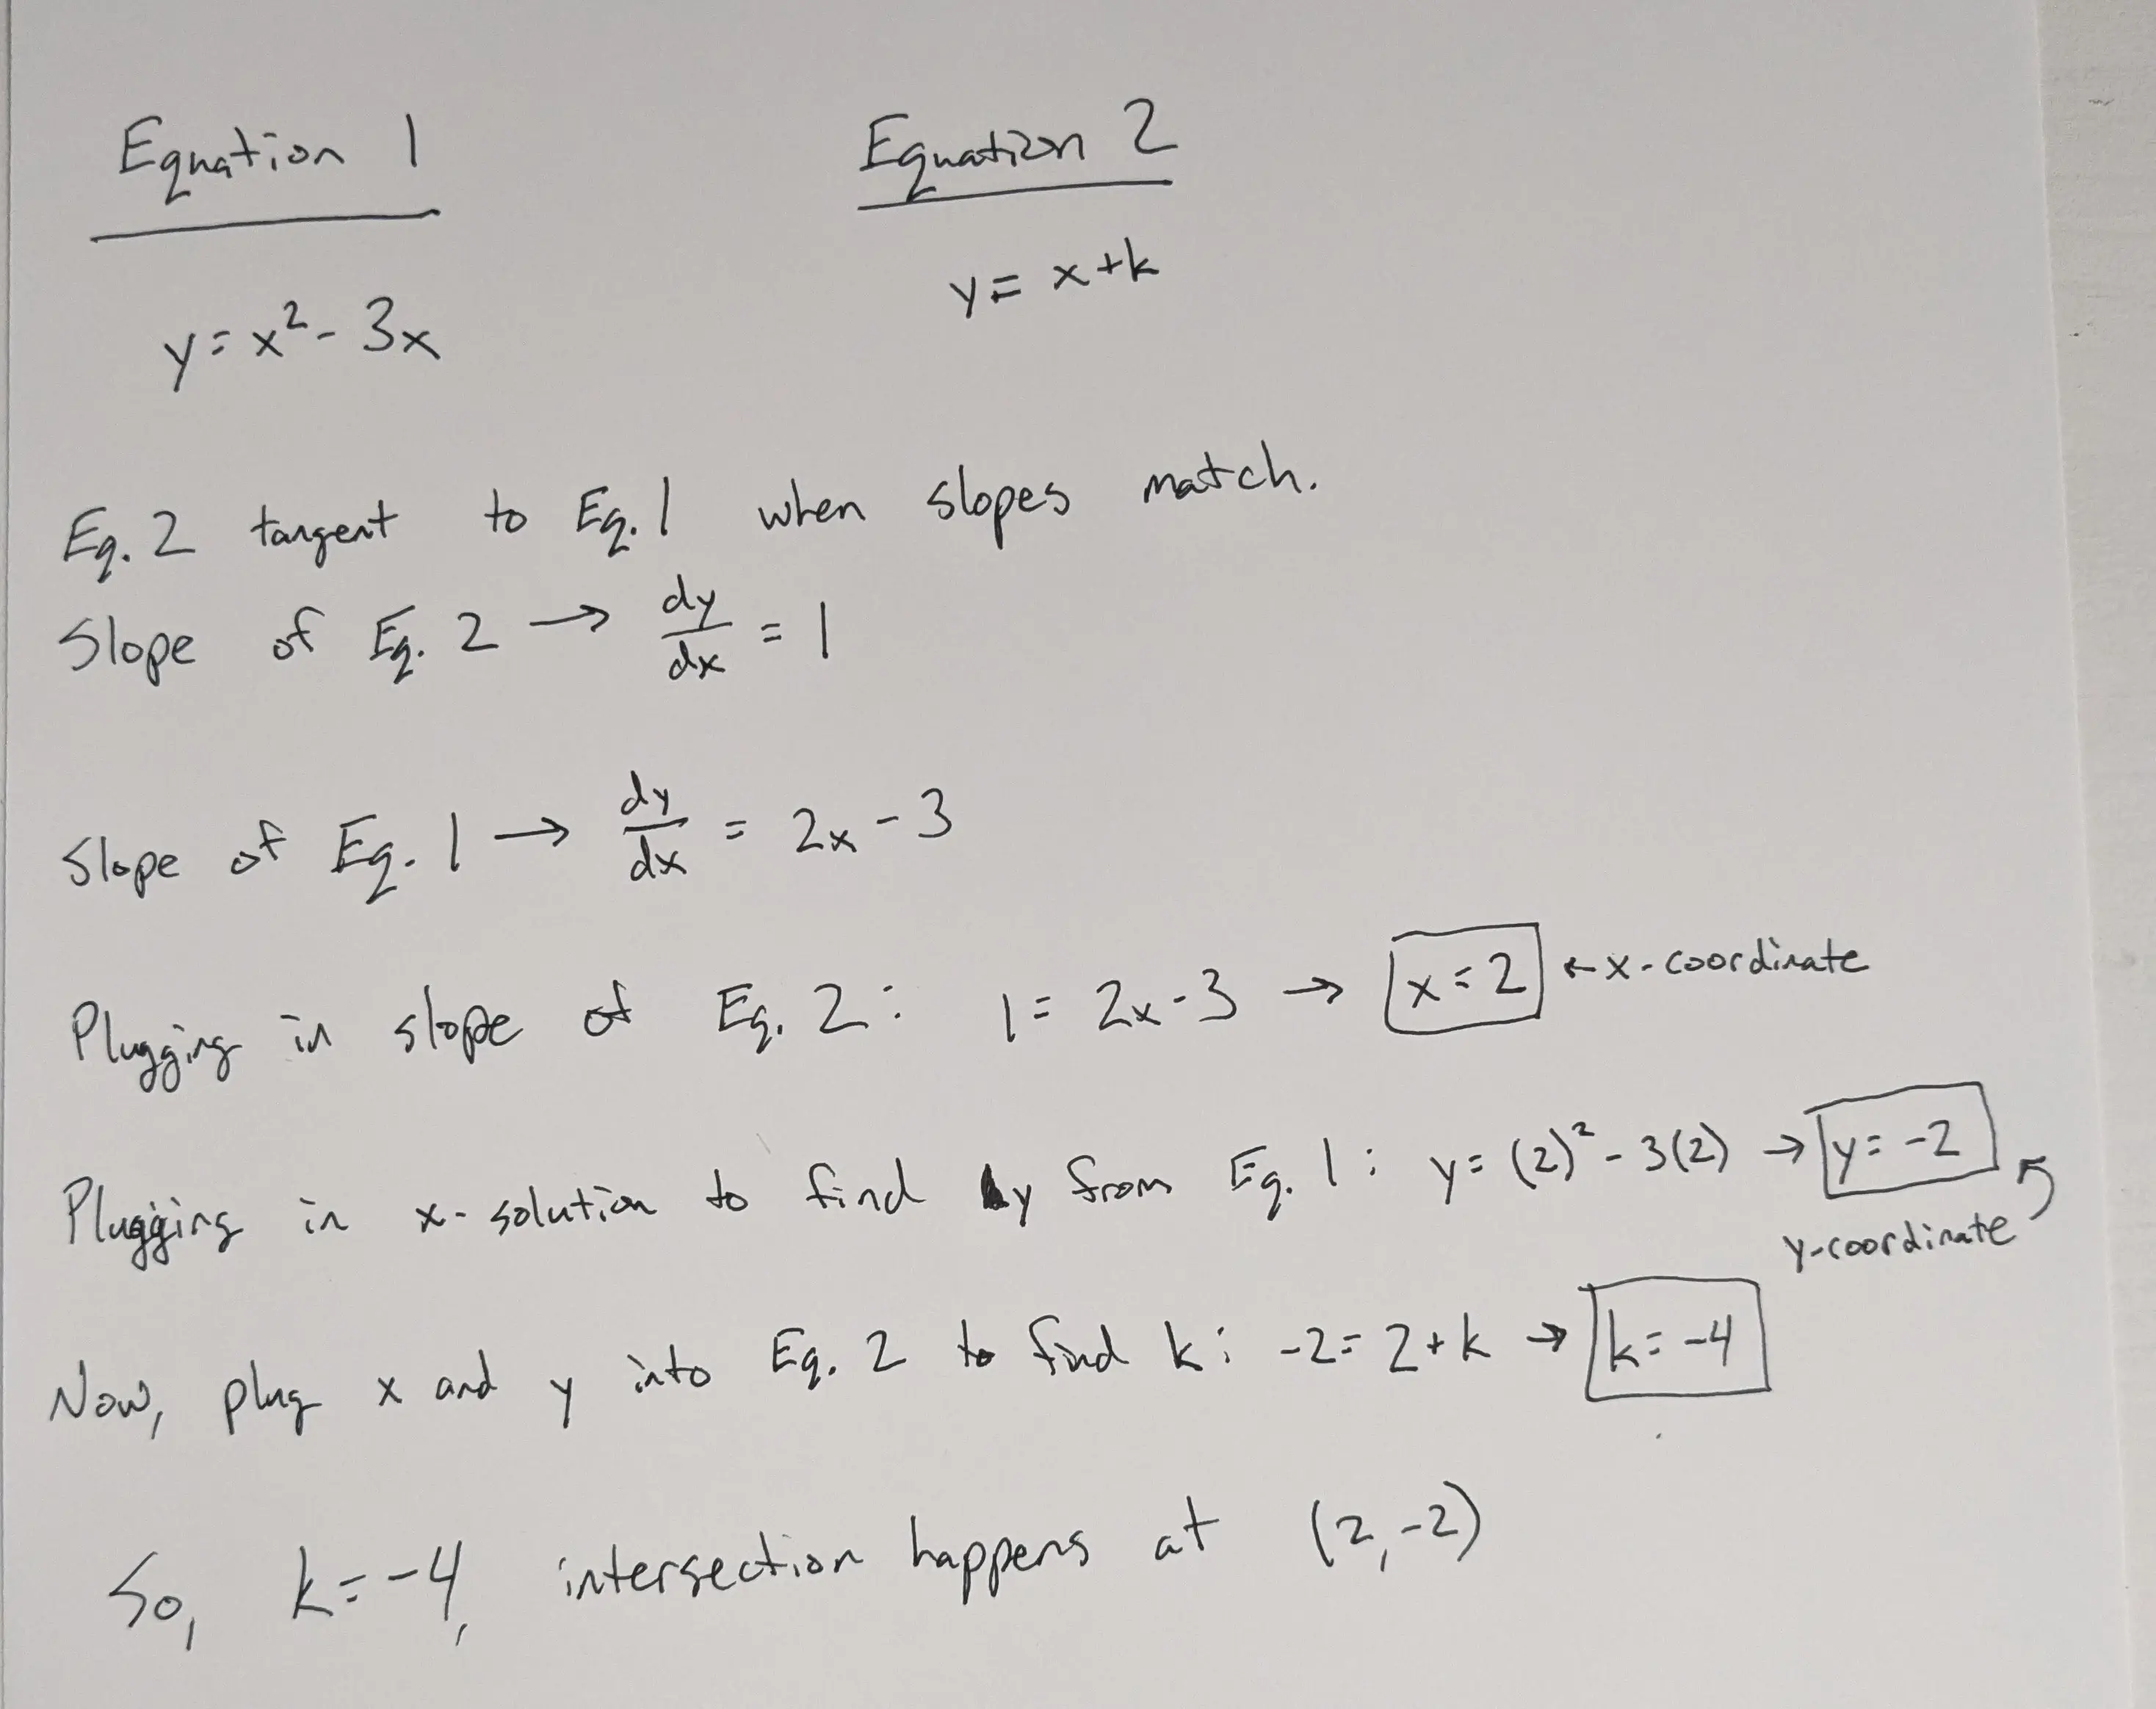 Equation 1
Equation 2
y = x² - 3x
y = x + k
Eq. 2 tangent to Eq. 1 when slopes match.
Slope of Eq. 2 → dy/dx = 1
Slope of Eq. 1 → dy/dx = 2x - 3
Plugging in slope of Eq. 2: 1 = 2x - 3 → x = 2 ← x-coordinate
Plugging in x-solution to find y from Eq. 1: y = (2)² - 3(2) → y = -2
y-coordinate
Now, plug x and y into Eq. 2 to find k: -2 = 2 + k → k = -4
So, k = -4, intersection happens at (2, -2)